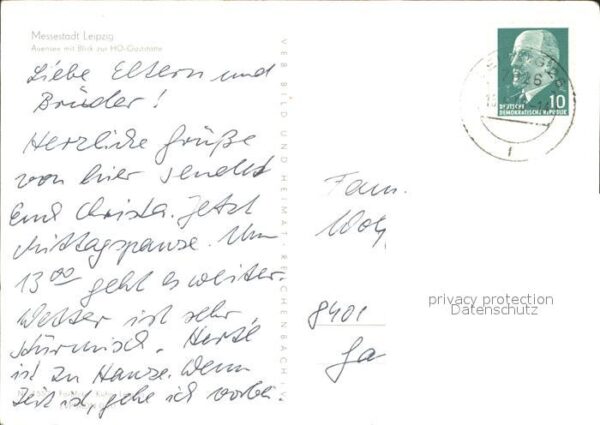 Messestadt Leipzig
Auensee mit Blick zur HO-Gaststätte
Liebe Eltern und
Brüder!
Herzliche Grüße
von hier sendet
Euch Christa. Jetzt
Mittagspause. Um
13 00 geht es weiter.
Wetter ist sehr
stürmisch.
ist zu Hause. Wenn
Zeit ist, gehe ich vorbei.
VEB BILD UND HEIMAT · REICHENBACH I. V.
10
DEUTSCHE
DEMOKRATISCHE REPUBLIK
Fam.
8401
privacy protection
Datenschutz